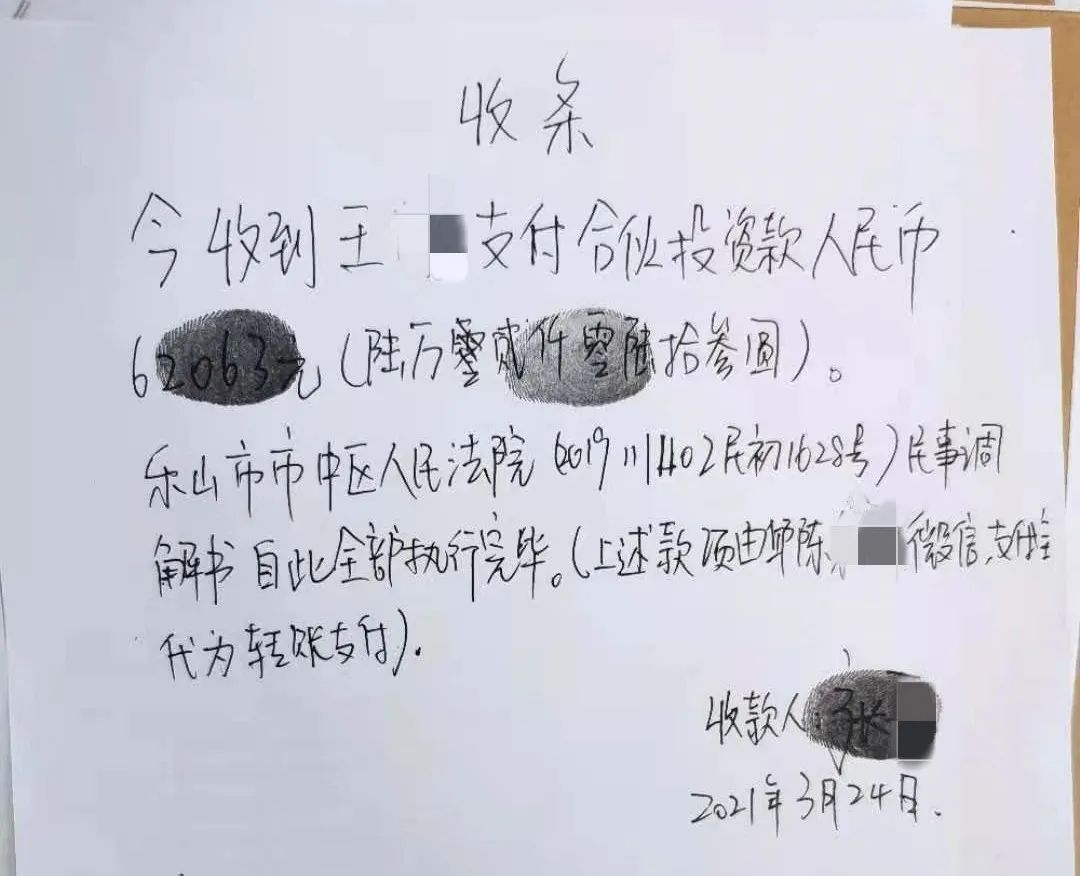 收条
今收到王 支付合伙投资款人民币
62063元(陆万零贰仟零陆拾参圆)。
乐山市市中区人民法院(2019川1402民初1628号)民事调
解书自此全部执行完毕。(上述款项由 陈 微信、支付宝
代为转账支付).
收款人:张
2021年3月24日.